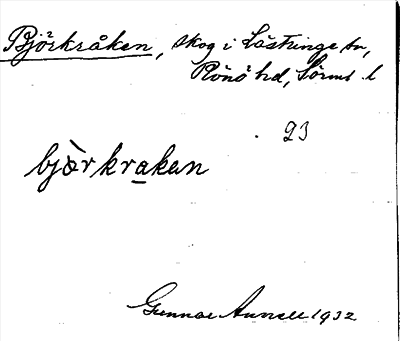 Björkråken, skog i Lästringe sn,
Rönö hd, Sörml. l
23
bjòrkrakan
Gunnar Aunell 1932